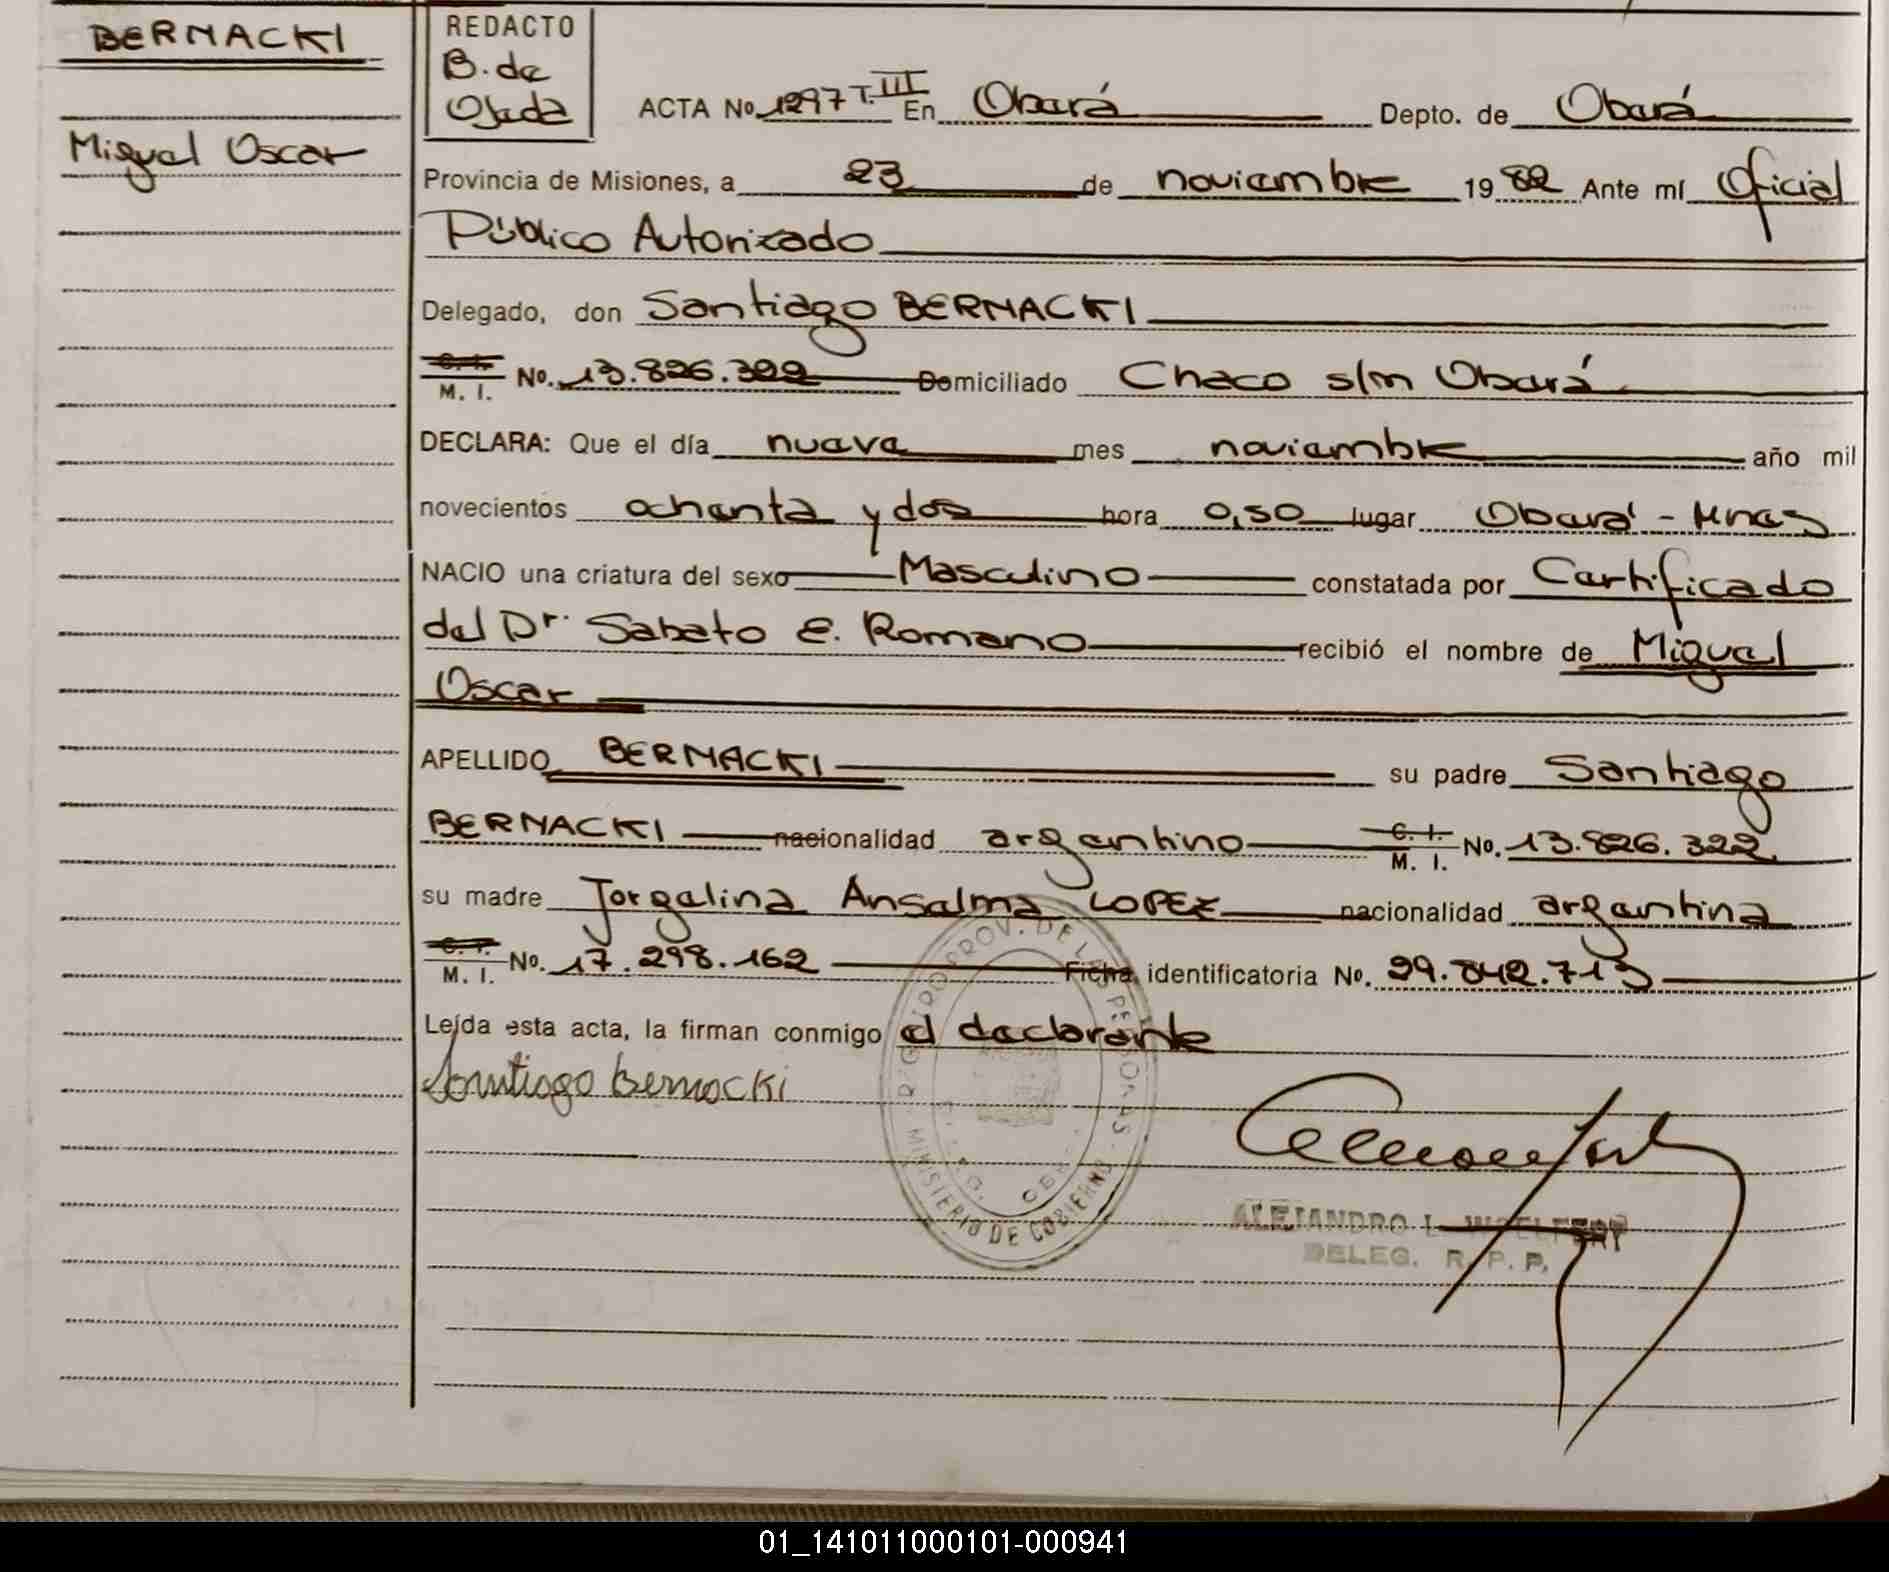 BERNACKI
Miguel Oscar
REDACTO
B. de
Ojeda
ACTA No. 1297 T. III En Oberá Depto. de Oberá
Provincia de Misiones, a 23 de noviembre 1982 Ante mí Oficial
Público Autorizado
Delegado, don Santiago BERNACKI
C. I.
M. I. No. 13.826.322 Domiciliado Chaco s/n Oberá
DECLARA: Que el día nueve mes noviembre año mil
novecientos ochenta y dos hora 0,50 lugar Oberá - Mnes
NACIO una criatura del sexo Masculino constatada por Certificado
del Dr. Sabato E. Romano recibió el nombre de Miguel
Oscar
APELLIDO BERNACKI su padre Santiago
BERNACKI nacionalidad argentino C. I.
M. I. No. 13.826.322
su madre Jorgelina Anselma LOPEZ nacionalidad argentina
C. I.
M. I. No. 17.298.162 Ficha identificatoria No. 29.842.713
Leída esta acta, la firman conmigo el declarante
Santiago Bernacki
REGISTRO PROV. DE LAS PERSONAS
MINISTERIO DE GOBIERNO
ALEJANDRO L.
DELEG. R. P. P.
01_141011000101-000941